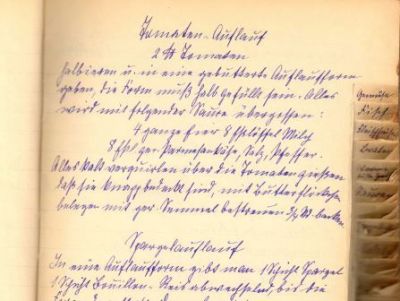 Tomaten-Auflauf
2 ℔ Tomaten
halbieren u. in eine gebutterte Auflaufform
geben, die Form muß halb gefüllt sein. Alles
wird mit folgender Sauce übergossen:
4 ganze Eier 8 Eßlöffel Milch
8 Eßl. ger. Parmesankäse, Salz, Pfeffer.
Alles kalt verquirlen über die Tomaten gießen
daß sie knapp bedeckt sind, mit Butterflöckchen
belegen mit ger. Semmel bestreuen ¾ St. backen
Spargelauflauf
In eine Auflaufform gibt man 1 Schicht Spargel
1 Schicht Bouillon-Reis abwechselnd, bis die
Gemüse
Fisch